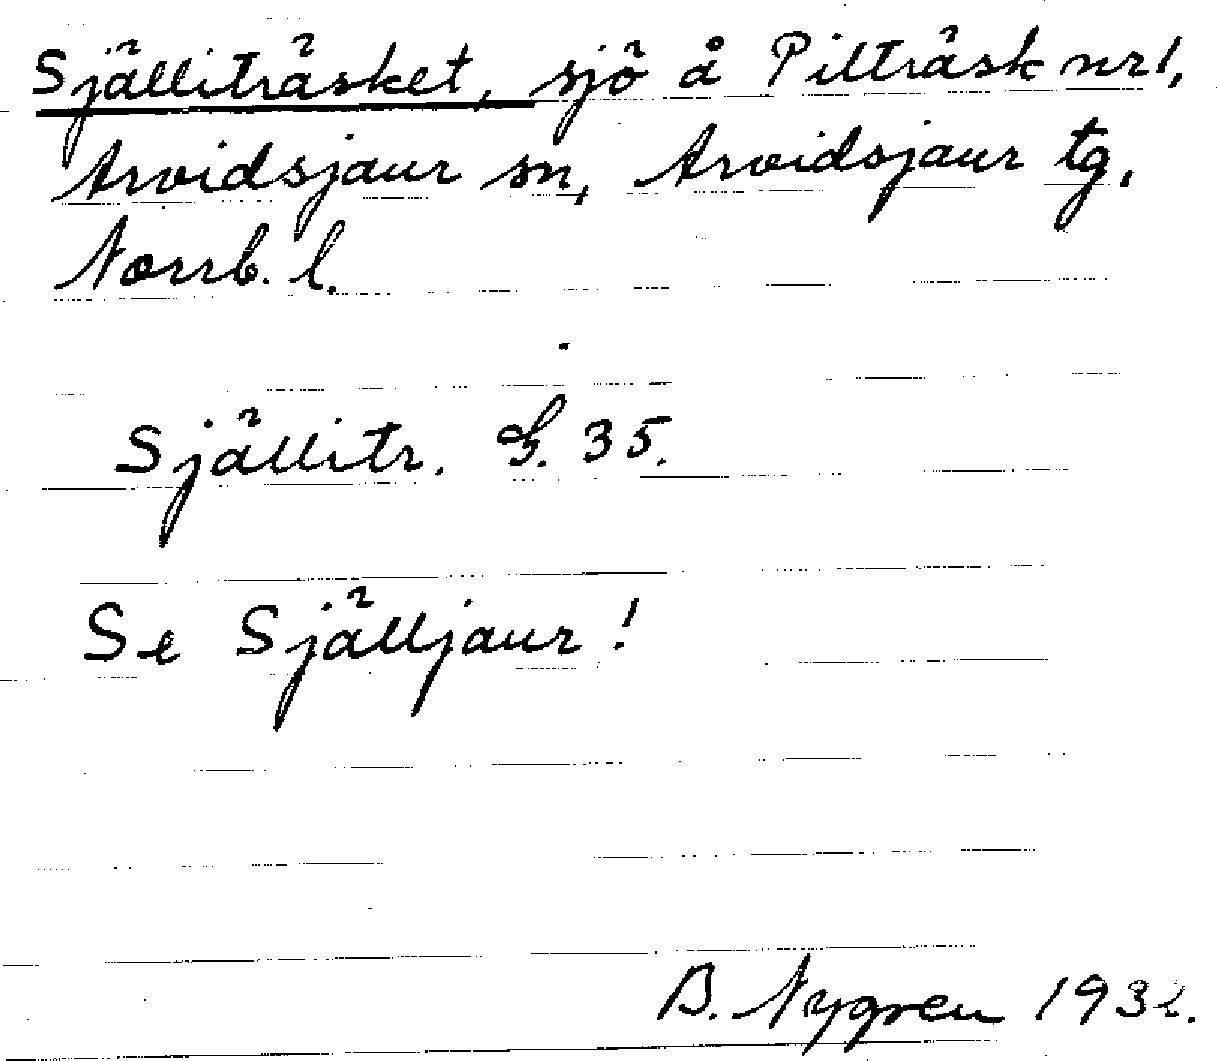 Själliträsket, sjö å Pilträsk nr 1,
Arvidsjaur sn, Arvidsjaur tg,
Norrb. l.
Själlitr. G. 35.
Se Själljaur!
B. Nygren 1932.